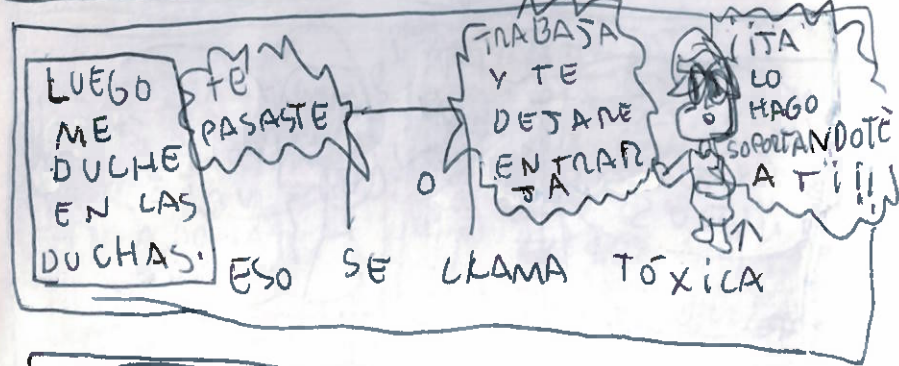 LUEGO
ME
DUCHE
EN LAS
DUCHAS.
TE
PASASTE
TRABAJA
Y TE
DEJARE
ENTRAR
JA
¡¡JA
LO
HAGO
SOPORTANDOTE
A TI!!
ESO SE LLAMA TÓXICA